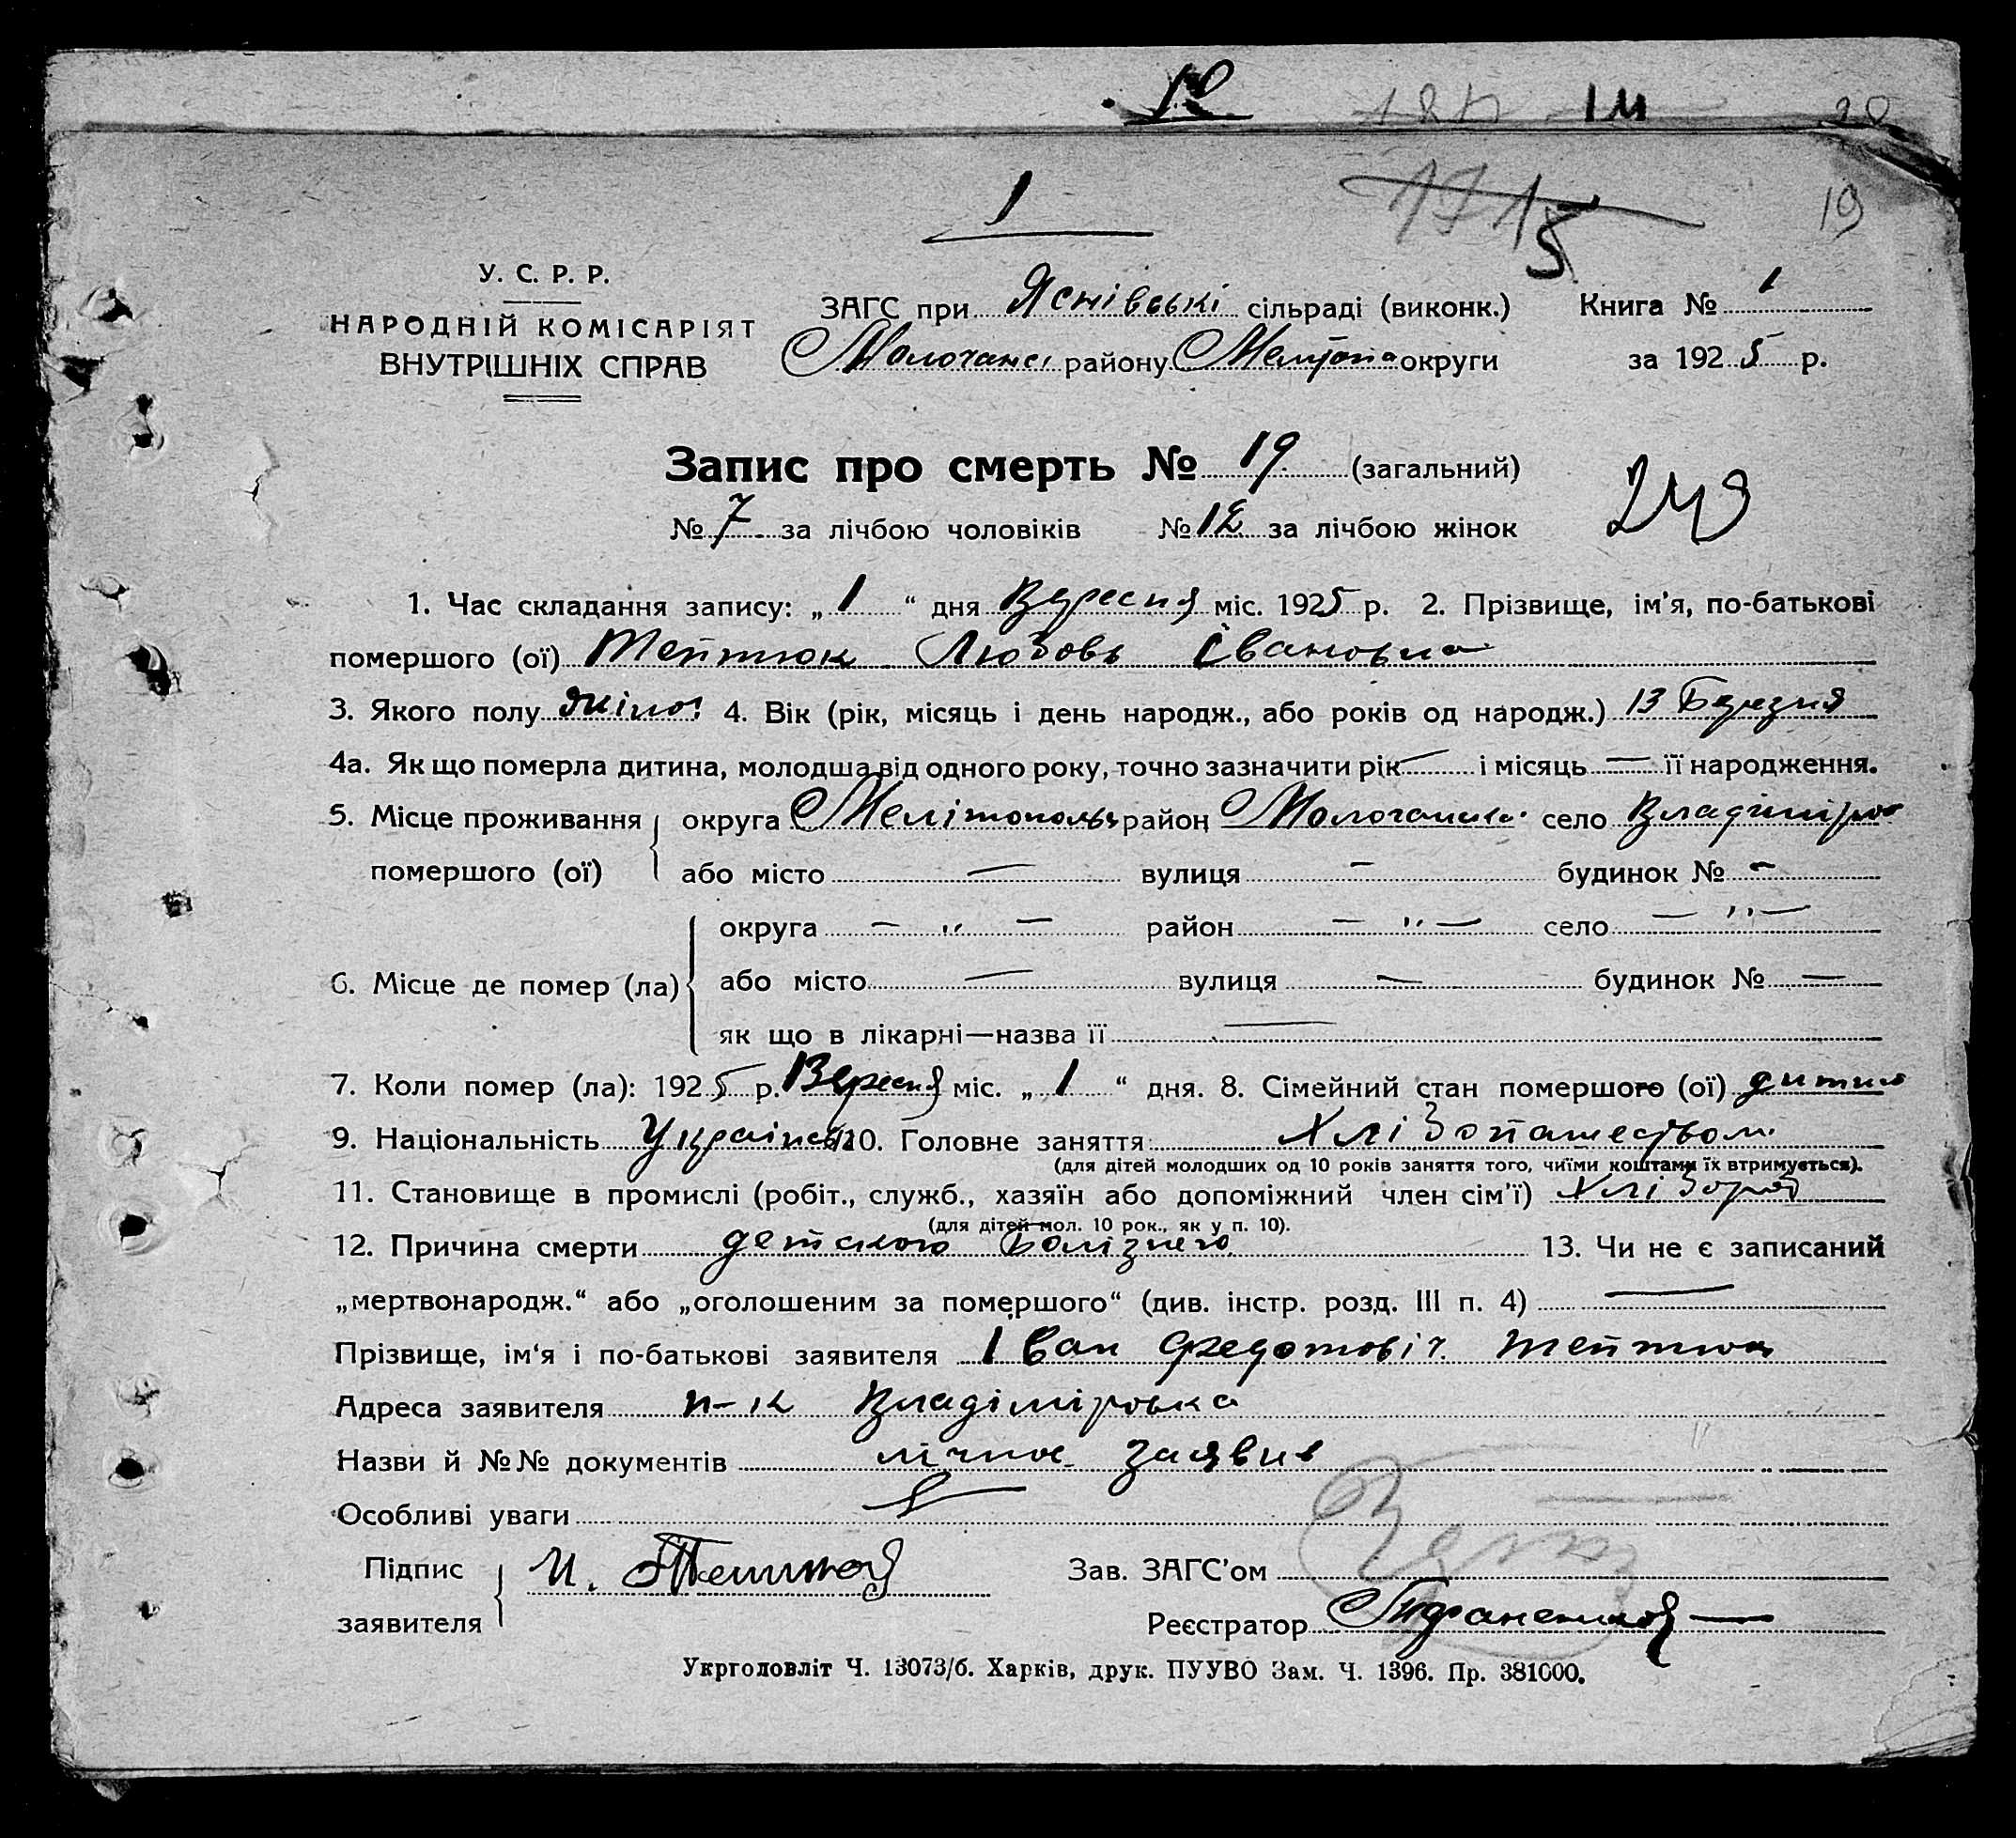 10 14 20
1 1915 19
У. С. Р. Р.
НАРОДНІЙ КОМІСАРІЯТ
ВНУТРІШНІХ СПРАВ
ЗАГС при Яснівські сільраді (виконк.) Книга № 1
Молочанс. району Меліто округи за 1925 р.
Запис про смерть № 19 (загальний)
249
№ 7 за лічбою чоловіків № 12 за лічбою жінок
1. Час складання запису: „ 1 “ дня Вересня міс. 1925 р. 2. Прізвище, ім'я, по-батькові
помершого (ої) Тептюк Любовь Івановна
3. Якого полу жіноч 4. Вік (рік, місяць і день народж., або років од народж.) 13 Березня
4а. Як що померла дитина, молодша від одного року, точно зазначити рік — і місяць — її народження.
5. Місце проживання помершого (ої) округа Мелітопольс район Молочанськ. село Владіміров
або місто — вулиця — будинок № -
6. Місце де помер (ла) округа — „ — район — „ — село — „ —
або місто — вулиця — будинок № —
як що в лікарні—назва її —
7. Коли помер (ла): 1925 р. Вересня міс. „ 1 “ дня. 8. Сімейний стан помершого (ої) дитина
9. Національність Українка 10. Головне заняття: Хлібопашеством
(для дітей молодших од 10 років заняття того, чиїми коштами їх втримується).
11. Становище в промислі (робіт., служб., хазяїн або допоміжний член сім'ї) Хлібороб
(для дітей мол. 10 рок., як у п. 10).
12. Причина смерти детскою болізнею 13. Чи не є записаний
„мертвонародж.“ або „оголошеним за помершого“ (див. інстр. розд. III п. 4) —
Прізвище, ім'я і по-батькові заявителя Іван Федотовіч Тептюк
Адреса заявителя п-к Владіміровка
Назви й №№ документів лічное заявив
Особливі уваги —
Підпис заявителя И. Тептюк
Зав. ЗАГС'ом
Реєстратор
Укрголовліт Ч. 13073/б. Харків, друк. ПУУВО Зам. Ч. 1396. Пр. 381000.